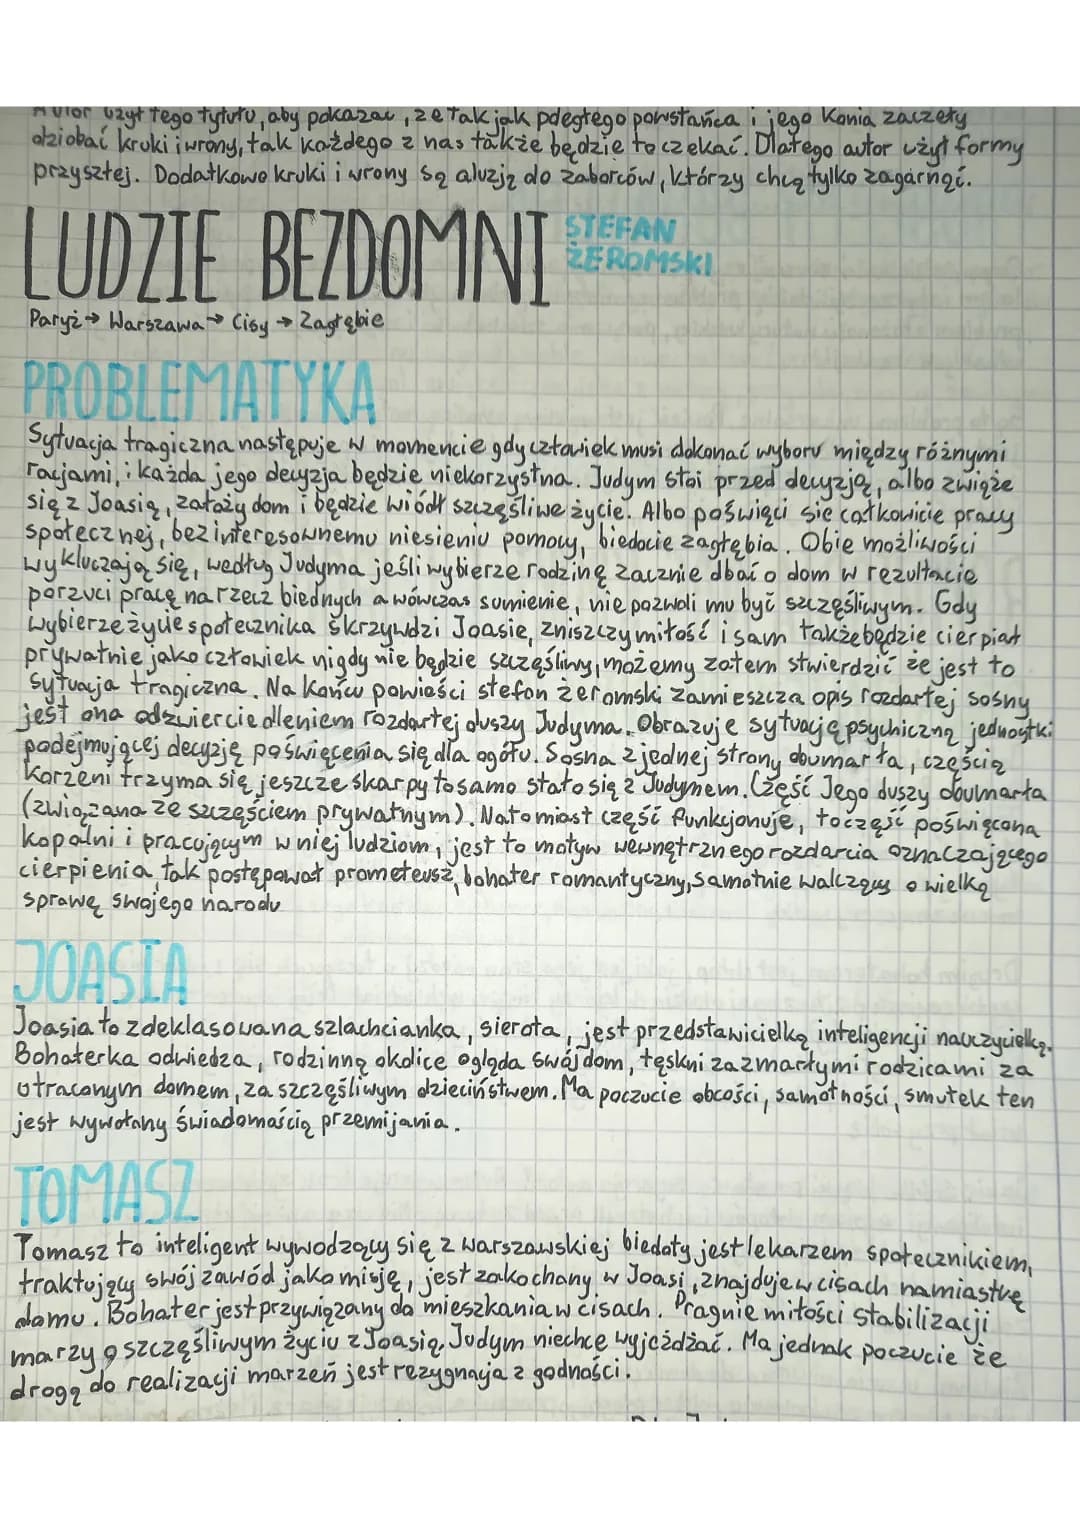 Autor użył tego tytułu, aby pokazać, że tak jak poległego powstańca i jego konia zaczęły
dziobać kruki i wrony, tak każdego z nas także będzie to czekać. Dlatego autor użył formy
przyszłej. Dodatkowo kruki i wrony są aluzją do zaborców, którzy chcą tylko zagarnąć.
LUDZIE BEZDOMNI STEFAN
ŻEROMSKI
Paryż → Warszawa → Cisy → Zagłębie
PROBLEMATYKA
Sytuacja tragiczna następuje w momencie gdy człowiek musi dokonać wyboru między różnymi
racjami, i każda jego decyzja będzie niekorzystna. Judym stoi przed decyzją, albo zwiąże
się z Joasią, założy dom i będzie wiódł szczęśliwe życie. Albo poświęci się całkowicie pracy
społecznej, bezinteresownemu niesieniu pomocy, biedocie zagłębia. Obie możliwości
wykluczają się, według Judyma jeśli wybierze rodzinę zacznie dbać o dom w rezultacie
porzuci pracę na rzecz biednych a wówczas sumienie, nie pozwoli mu być szczęśliwym. Gdy
wybierze życie społecznika skrzywdzi Joasie, zniszczy miłość i sam także będzie cierpiał
prywatnie jako człowiek nigdy nie będzie szczęśliwy, możemy zatem stwierdzić że jest to
sytuacja tragiczna. Na końcu powieści stefan żeromski zamieszcza opis rozdartej sosny
jest ona odzwierciedleniem rozdartej duszy Judyma. Obrazuje sytuację psychiczną jednostki
podejmującej decyzję poświęcenia się dla ogółu. Sosna z jednej strony obumarła, częścią
korzeni trzyma się jeszcze skarpy to samo stało się z Judymem. Część Jego duszy obumarła
(związana ze szczęściem prywatnym). Natomiast część funkcjonuje, to część poświęcona
kopalni i pracującym w niej ludziom, jest to motyw wewnętrznego rozdarcia oznaczającego
cierpienia, tak postępował prometeusz, bohater romantyczny, samotnie walczący o wielką
sprawę swojego narodu
JOASIA
Joasia to zdeklasowana szlachcianka, sierota, jest przedstawicielką inteligencji nauczycielką.
Bohaterka odwiedza, rodzinną okolice ogląda swój dom, tęskni za zmarłymi rodzicami za
utraconym domem, za szczęśliwym dzieciństwem. Ma poczucie obcości, samotności, smutek ten
jest wywołany świadomością przemijania.
TOMASZ
Tomasz to inteligent wywodzący się z warszawskiej biedoty jest lekarzem społecznikiem,
traktujący swój zawód jako misję, jest zakochany w Joasi, znajduje w cisach namiastkę
domu. Bohater jest przywiązany do mieszkania w cisach. Pragnie miłości stabilizacji
marzy o szczęśliwym życiu z Joasią. Judym niechce wyjeżdżać. Ma jednak poczucie że
drogą do realizacji marzeń jest rezygnacja z godności.